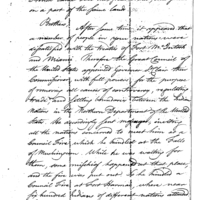 a part of the same land.
Brothers,
After some time it appeared that
a number of people in your nations were
dissatisfied with the Treaties of Fort McIntosh
and Miami. Therefore the Great Council of
the United States appointed Governor St Clair their
Commissioner, with full powers, for the purpose
of removing all causes of controversy, regulating
trade and settling boundaries between the Indian
nations in the Northern Department and the United
States. He accordingly sent messages, inviting
all the nations concerned to meet him at a
Council Fire which he kindled at the Falls
of Muskingum. While he was waiting for
them some mischief happened at that place,
and the fire was put out. So he kindled a
Council Fire at Fort Harmar, where near
six hundred Indians of different nations